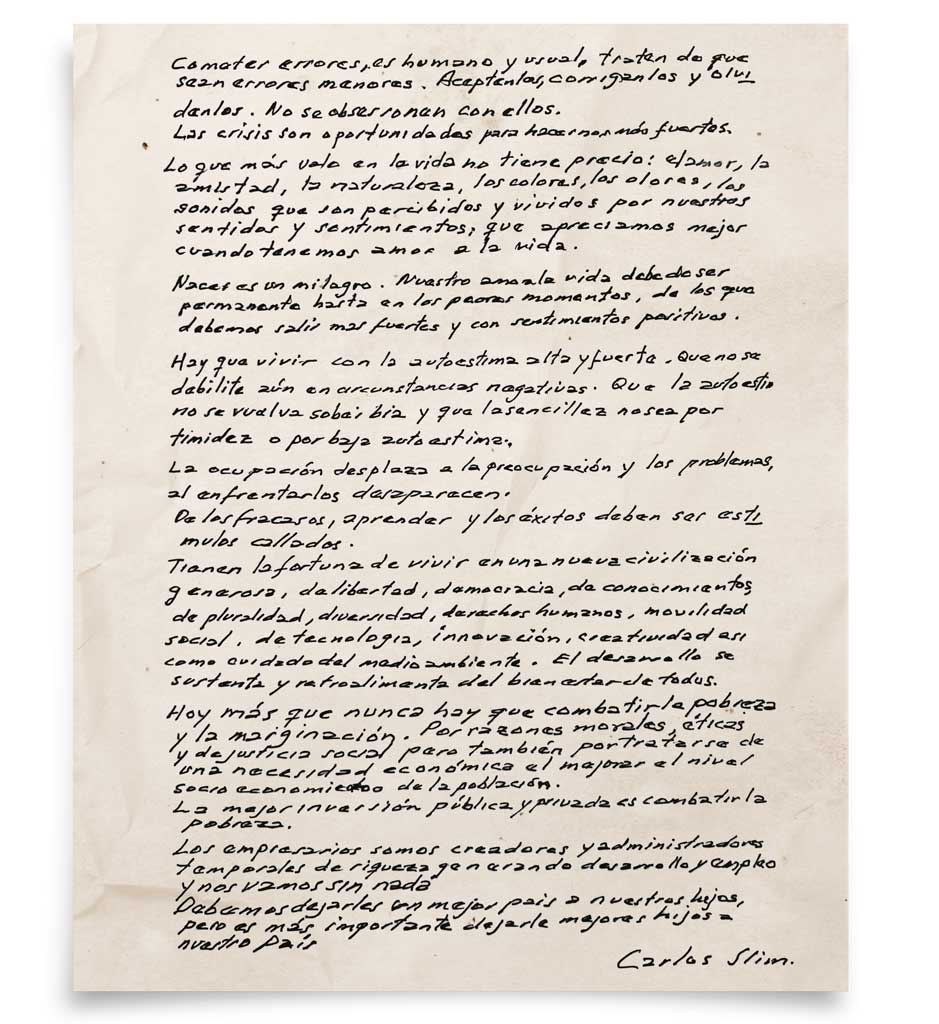 Cometer errores, es humano y usual, traten de que
sean errores menores. Acéptenlos, corríganlos y olvi
denlos. No se obsesionen con ellos.
Las crisis son oportunidades para hacernos más fuertes.
Lo que más vale en la vida no tiene precio: el amor, la
amistad, la naturaleza, los colores, los olores, los
sonidos que son percibidos y vividos por nuestros
sentidos y sentimientos, que apreciamos mejor
cuando tenemos amor a la vida.
Nacer es un milagro. Nuestro amor a la vida debe de ser
permanente hasta en los peores momentos, de los que
debemos salir mas fuertes y con sentimientos positivos.
Hay que vivir con la autoestima alta y fuerte. Que no se
debilite aún en circunstancias negativas. Que la autoestim
no se vuelva soberbia y que la sencillez no sea por
timidez o por baja autoestima.
La ocupación desplaza a la preocupación y los problemas,
al enfrentarlos desaparecen.
De los fracasos, aprender y los éxitos deben ser estí
mulos callados.
Tienen la fortuna de vivir en una nueva civilización
generosa, de libertad, democracia, de conocimientos,
de pluralidad, diversidad, derechos humanos, movilidad
social, de tecnología, innovación, creatividad así
como cuidado del medio ambiente. El desarrollo se
sustenta y retroalimenta del bienestar de todos.
Hoy más que nunca hay que combatir la pobreza
y la marginación. Por razones morales, éticas
y de justicia social pero también por tratarse de
una necesidad económica el mejorar el nivel
socio economico de la población.
La mejor inversión pública y privada es combatir la
pobreza.
Los empresarios somos creadores y administradores
temporales de riqueza generando desarrollo y empleo
y nos vamos sin nada
Debemos dejarles un mejor país a nuestros hijos,
pero es más importante dejarle mejores hijos a
nuestro país
Carlos Slim.